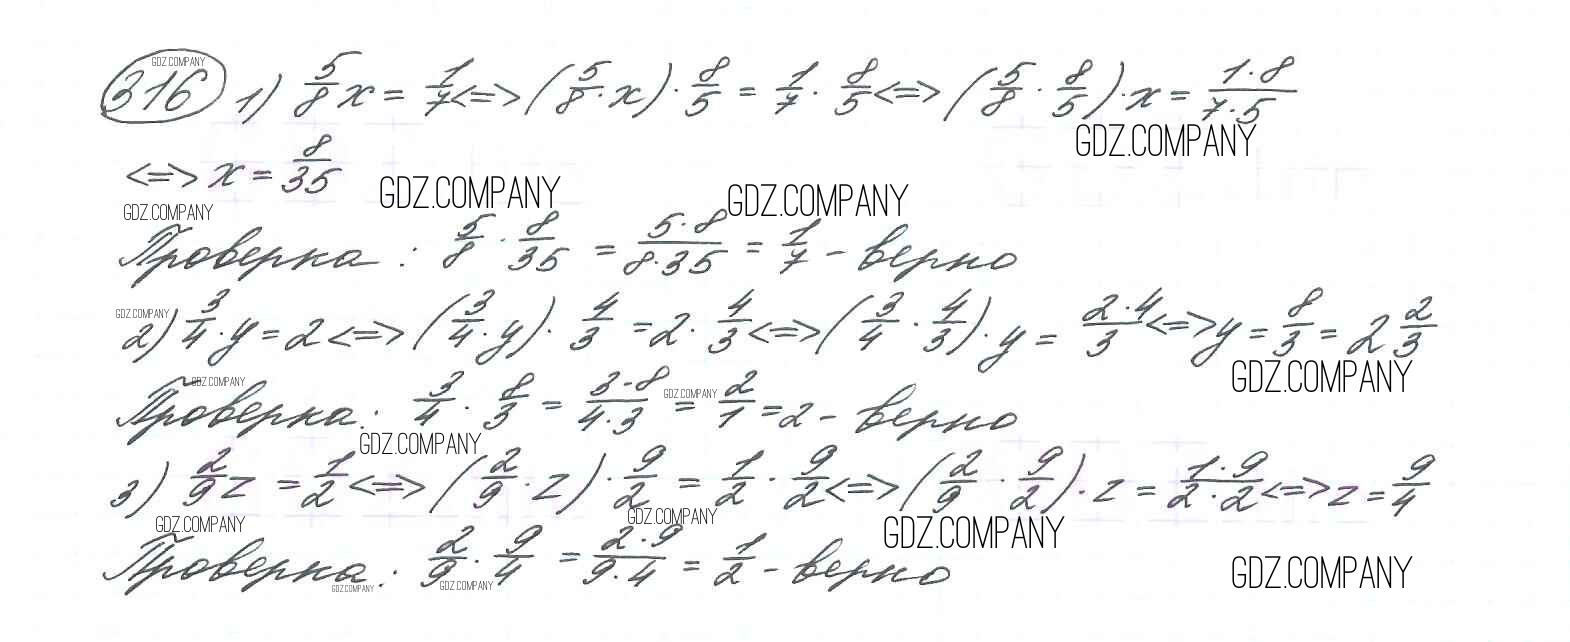 GDZ.COMPANY
316 1) 5/8 x = 1/7 <=> (5/8 · x) · 8/5 = 1/7 · 8/5 <=> (5/8 · 8/5) · x = 1·8/7·5
GDZ.COMPANY
<=> x = 8/35
GDZ.COMPANY GDZ.COMPANY
GDZ.COMPANY
Проверка : 5/8 · 8/35 = 5·8/8·35 = 1/7 - верно
GDZ.COMPANY
2) 3/4 · y = 2 <=> (3/4 · y) · 4/3 = 2 · 4/3 <=> (3/4 · 4/3) · y = 2·4/3 <=> y = 8/3 = 2 2/3
GDZ.COMPANY
GDZ.COMPANY GDZ.COMPANY
Проверка : 3/4 · 8/3 = 3·8/4·3 = 2/1 = 2 - верно
GDZ.COMPANY
3) 2/9 z = 1/2 <=> (2/9 · z) · 9/2 = 1/2 · 9/2 <=> (2/9 · 9/2) · z = 1·9/2·2 <=> z = 9/4
GDZ.COMPANY GDZ.COMPANY GDZ.COMPANY
Проверка : 2/9 · 9/4 = 2·9/9·4 = 1/2 - верно
GDZ.COMPANY GDZ.COMPANY GDZ.COMPANY